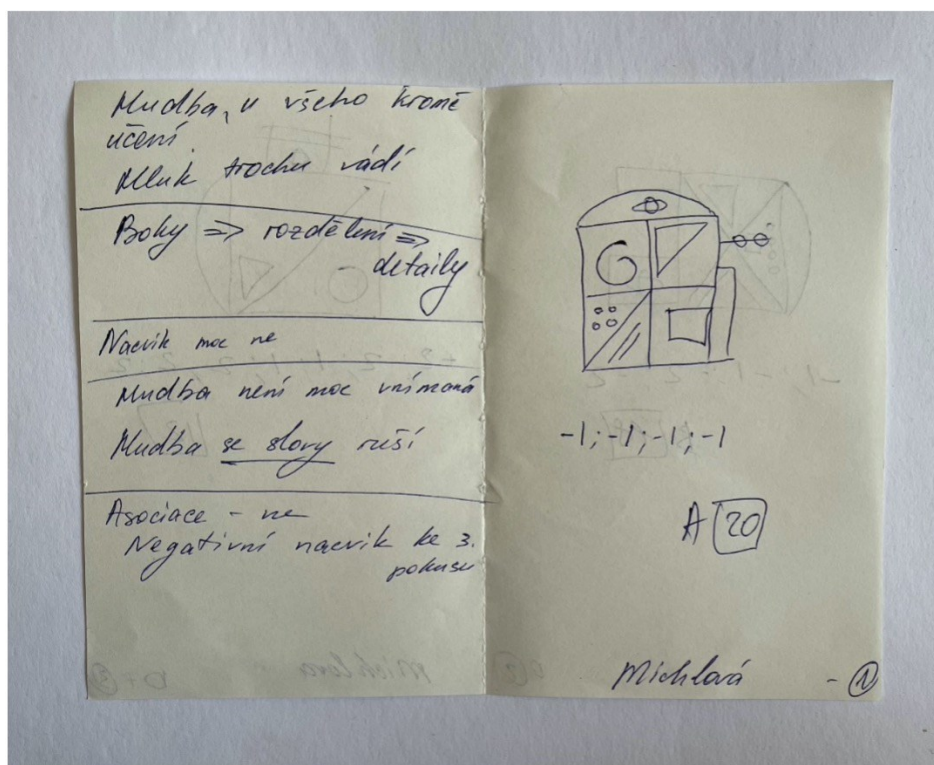 Hudba, u všeho kromě
učení
Hluk trochu vádí
Boky => rozdělení =>
- detaily
Nacvik moc ne
Hudba není moc vnímaná
Hudba se slovy ruší
Asociace - ne
Negativní nacvik ke 3.
pokusu
-1; -1; -1; -1
A 20
Michlová
- 1